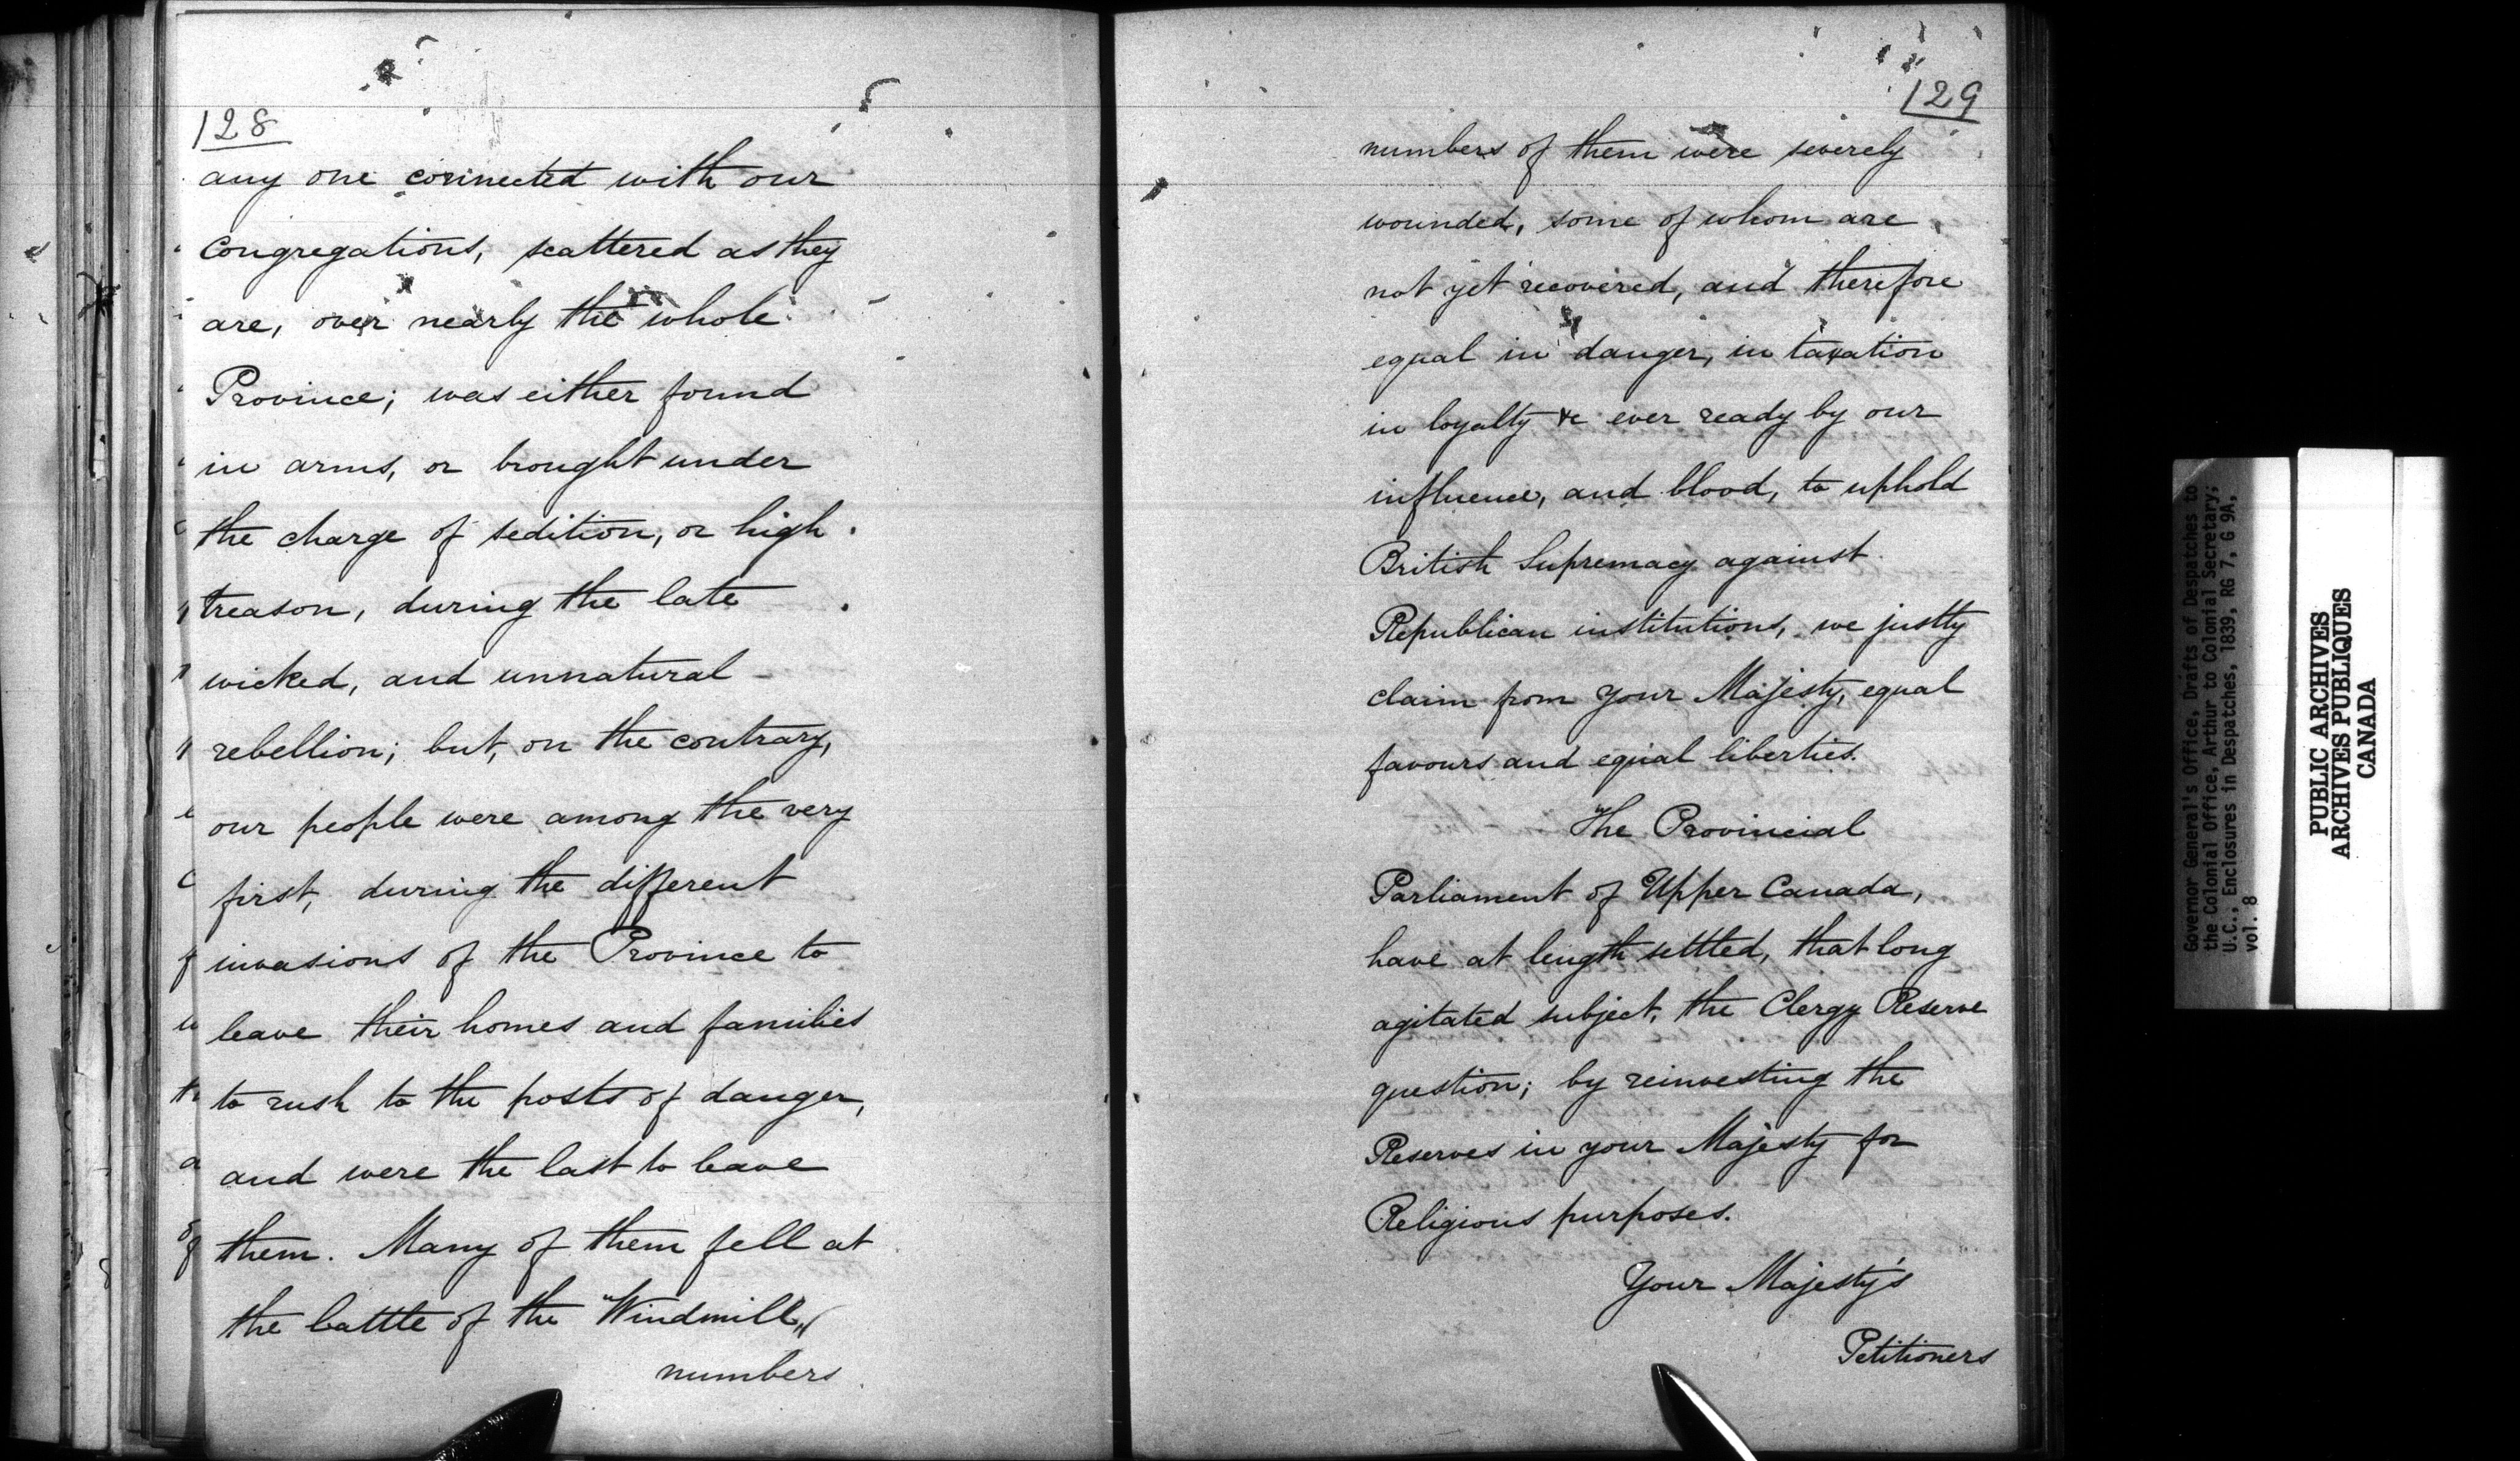 128
any one connected with our
congregations, scattered as they
are, over nearly the whole
Province; was either found
in arms, or brought under
the charge of sedition, or high
treason, during the late
wicked, and unnatural
rebellion; but, on the contrary,
our people were among the very
first, during the different
invasions of the Province to
leave their homes and families
to rush to the posts of danger,
and were the last to leave
them. Many of them fell at
the battle of the "Windmill,"
numbers
129
numbers of them were severely
wounded, some of whom are
not yet recovered, and therefore
equal in danger, in taxation
in loyalty & ever ready by our
influence, and blood, to uphold
British Supremacy against
Republican institutions, we justly
claim from your Majesty, equal
favours and equal liberties.
The Provincial
Parliament of Upper Canada,
have at length settled, that long
agitated subject, the Clergy Reserve
question; by reinvesting the
Reserves in your Majesty for
Religious purposes.
Your Majesty's
Petitioners
Governor General's Office. Drafts of Despatches to
the Colonial Office. Arthur to Colonial Secretary;
U.C., Enclosures in Despatches, 1839, RG 7, G 9A,
vol. 8
PUBLIC ARCHIVES
ARCHIVES PUBLIQUES
CANADA